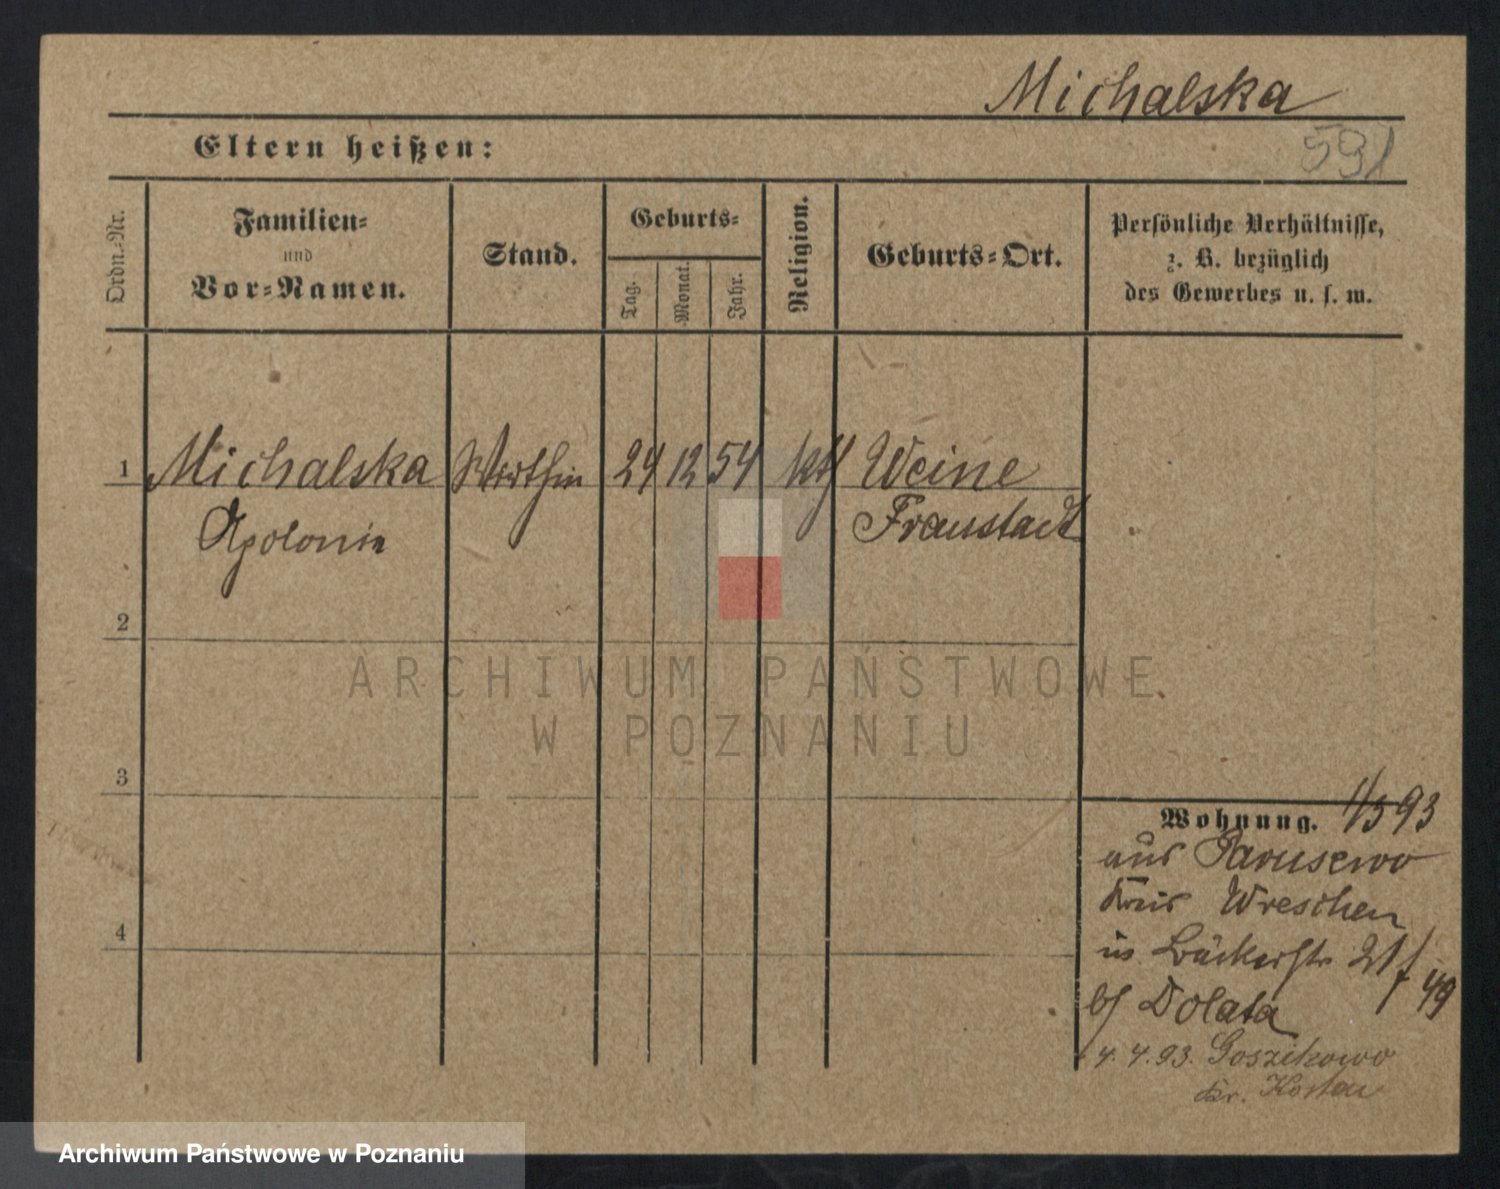 Michalska
591
Eltern heißen:
Ordn.-Nr.
Familien-
und
Vor-Namen.
Stand.
Geburts-
Tag.
Monat.
Jahr.
Religion.
Geburts-Ort.
Persönliche Verhältnisse,
z. B. bezüglich
des Gewerbes u. s. w.
1 Michalska Wirthin 24 12 54 kth Weine
Apolonia Fraustadt
2
ARCHIWUM PAŃSTWOWE
W POZNANIU
3
Wohnung. 1/3 93
aus
Kreis Wreschen
in Bäckerstr 21/
49
b/ Dolata
4. 4. 93.
Kr. Kosten
4
Archiwum Państwowe w Poznaniu